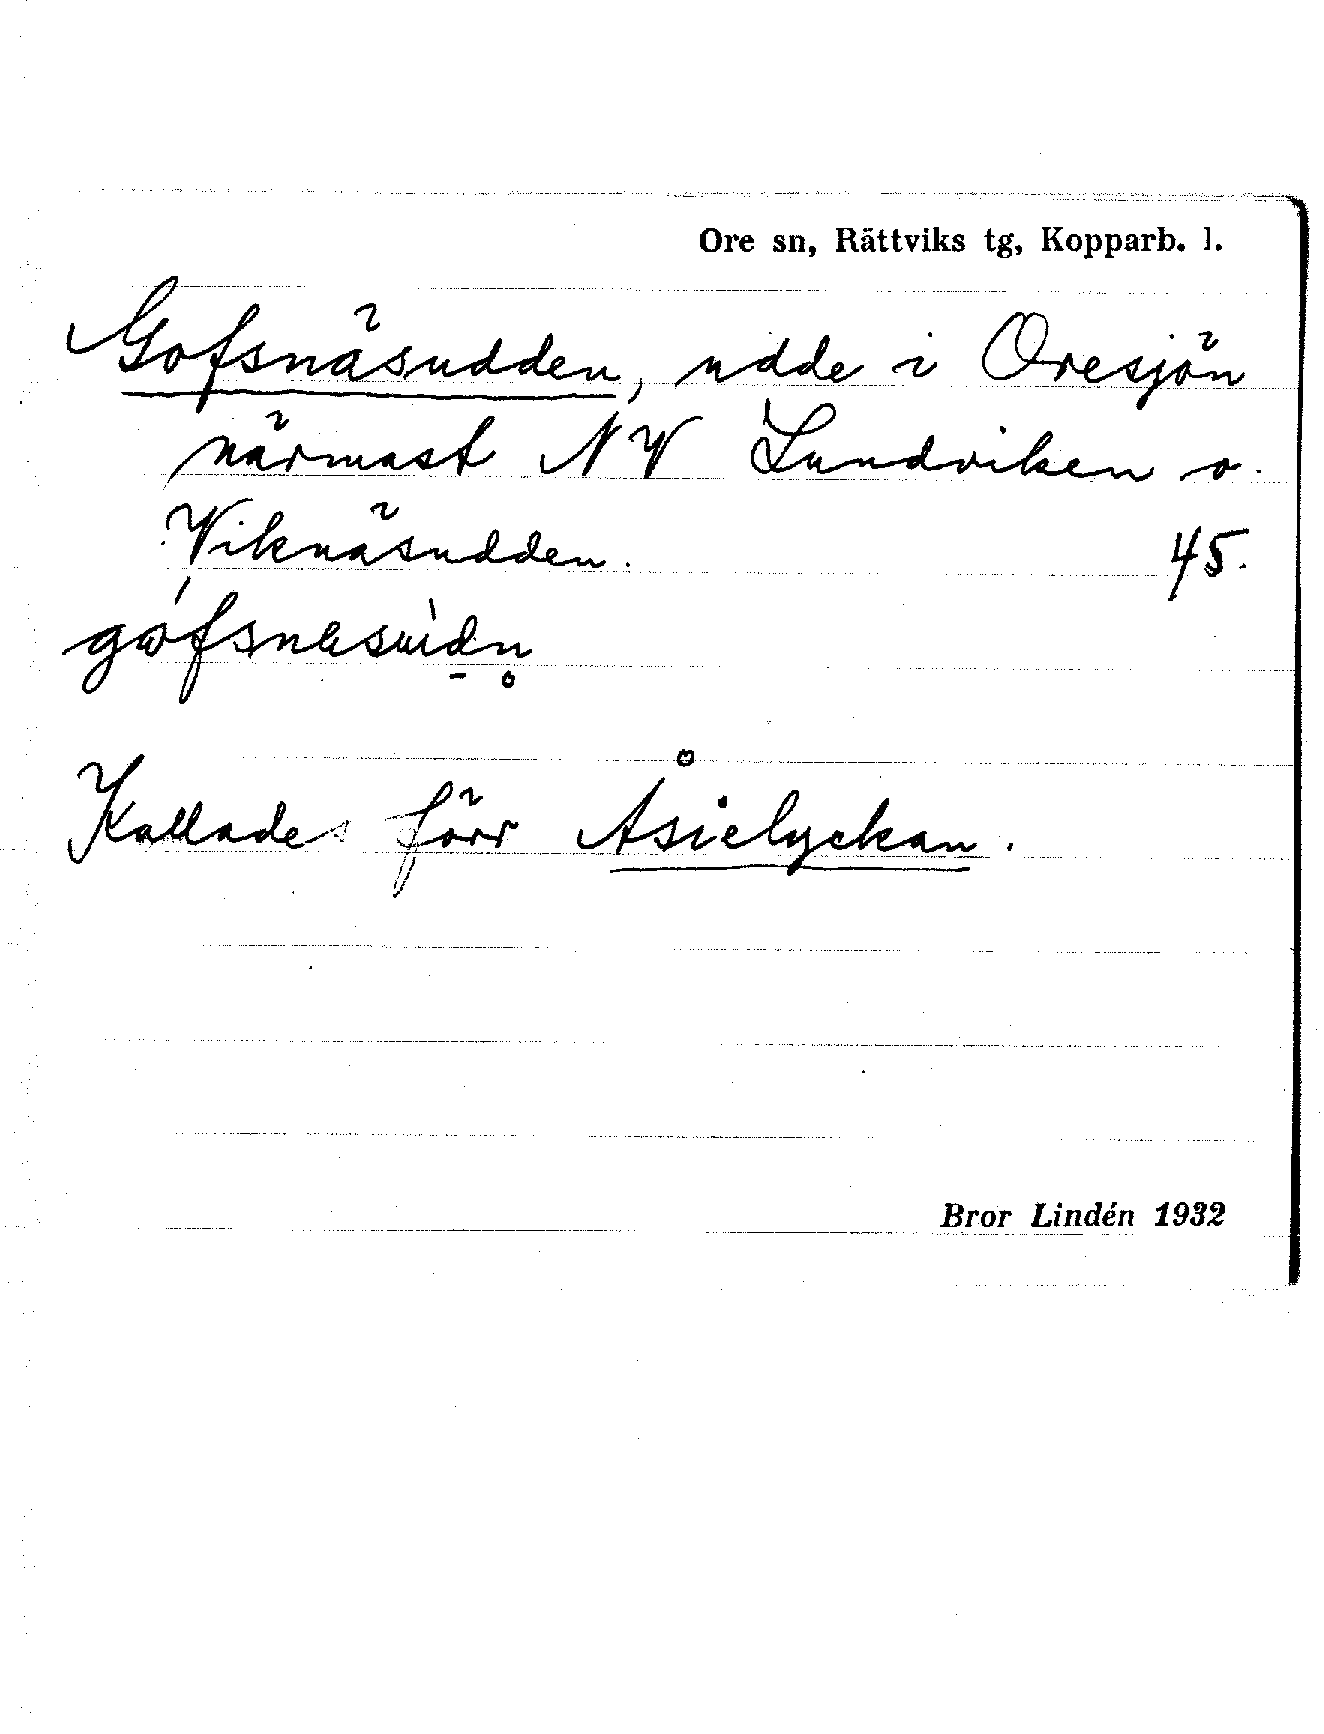 Ore sn, Rättviks tg, Kopparb. l.
Gofsnäsudden, udde i Oresjön
närmast NV Lundviken o.
Viknäsudden. 45.
Kallades förr Åsielyckan.
Bror Lindén 1932